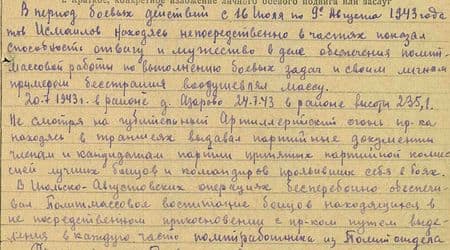 краткое, конкретное изложение личного боевого подвига или заслуг
В период боевых действий с 16 Июля по 9е Августа 1943 года
тов Исмаилов находясь непосредственно в частях показал
способность отвагу и мужество в деле обеспечения полит-
массовой работы по выполнению боевых задач и своим личным
примером бесстрашия воодушевлял массу.
20.7.1943г. в районе д. Азарово 24.7.43 в районе высоты 235,1.
Не смотря на губительный Артиллерийский огонь пр-ка
находясь в траншеях выдавал партийные документы
членам и кандидатам партии принятых партийной комис
сией лучших бойцов и командиров проявивших себя в боях.
В Июльско-Августовских операциях бесперебойно обеспечи-
вал Политмассовое воспитание бойцов находящихся в
не посредственном прикосновении с пр-ком путем выде-
ления в каждую часть политработника из Политотдела